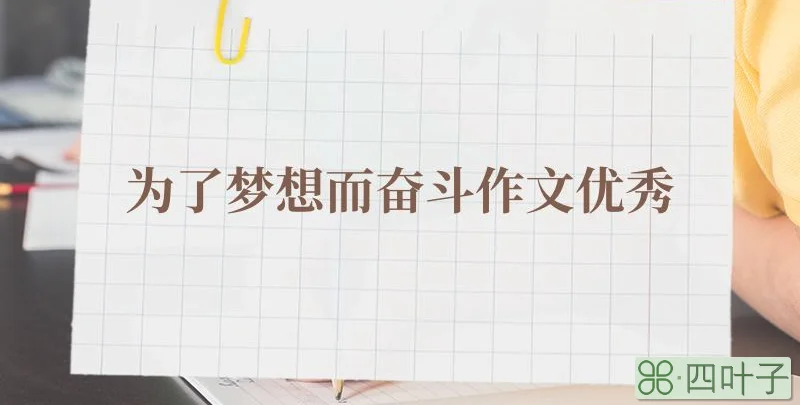 为了梦想而奋斗作文优秀
四叶子